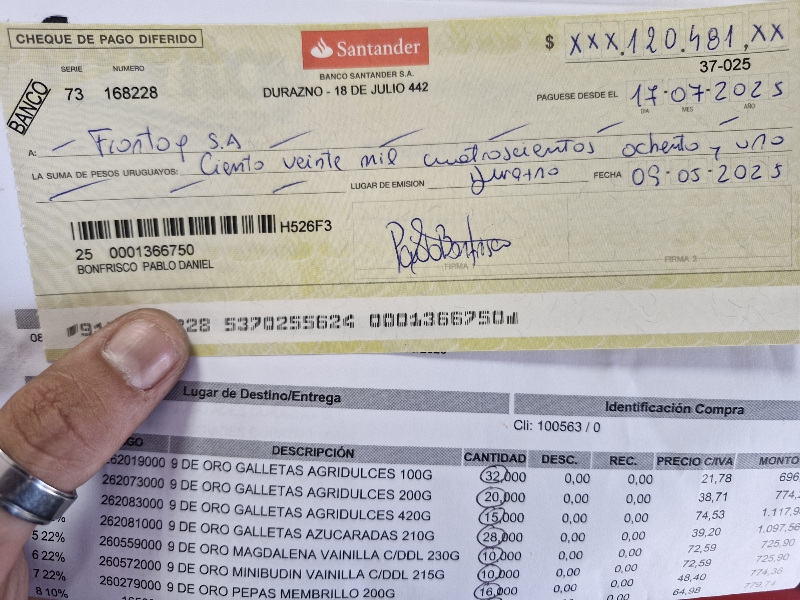 CHEQUE DE PAGO DIFERIDO
Santander
$ XXX.120.481,XX
BANCO SANTANDER S.A.
37-025
SERIE NUMERO
73 168228
DURAZNO - 18 DE JULIO 442
BANCO
PAGUESE DESDE EL 17-07-2025
DIA MES AÑO
A: Fiontoy S.A
LA SUMA DE PESOS URUGUAYOS: Ciento veinte mil cuatroscientos ochento y uno
LUGAR DE EMISION Durazno FECHA 09-05-2025
H526F3
25 0001366750
BONFRISCO PABLO DANIEL
FIRMA
FIRMA 2
28 5370255624 0001366750
08
Lugar de Destino/Entrega
Identificación Compra
Cli: 100563 / 0
DESCRIPCIÓN CANTIDAD DESC. REC. PRECIO C/IVA MONTO
262019000 9 DE ORO GALLETAS AGRIDULCES 100G 32,000 0,00 0,00 21,78 696
262073000 9 DE ORO GALLETAS AGRIDULCES 200G 20,000 0,00 0,00 38,71 774,
262083000 9 DE ORO GALLETAS AGRIDULCES 420G 15,000 0,00 0,00 74,53 1.117,9
262081000 9 DE ORO GALLETAS AZUCARADAS 210G 28,000 0,00 0,00 39,20 1.097,56
5 22% 260559000 9 DE ORO MAGDALENA VAINILLA C/DDL 230G 10,000 0,00 0,00 72,59 725,90
6 22% 260572000 9 DE ORO MINIBUDIN VAINILLA C/DDL 215G 10,000 0,00 0,00 72,59 725,90
7 22% 260279000 9 DE ORO PEPAS MEMBRILLO 200G 16,000 0,00 0,00 48,40 774,38
8 10% 64,98 779,74